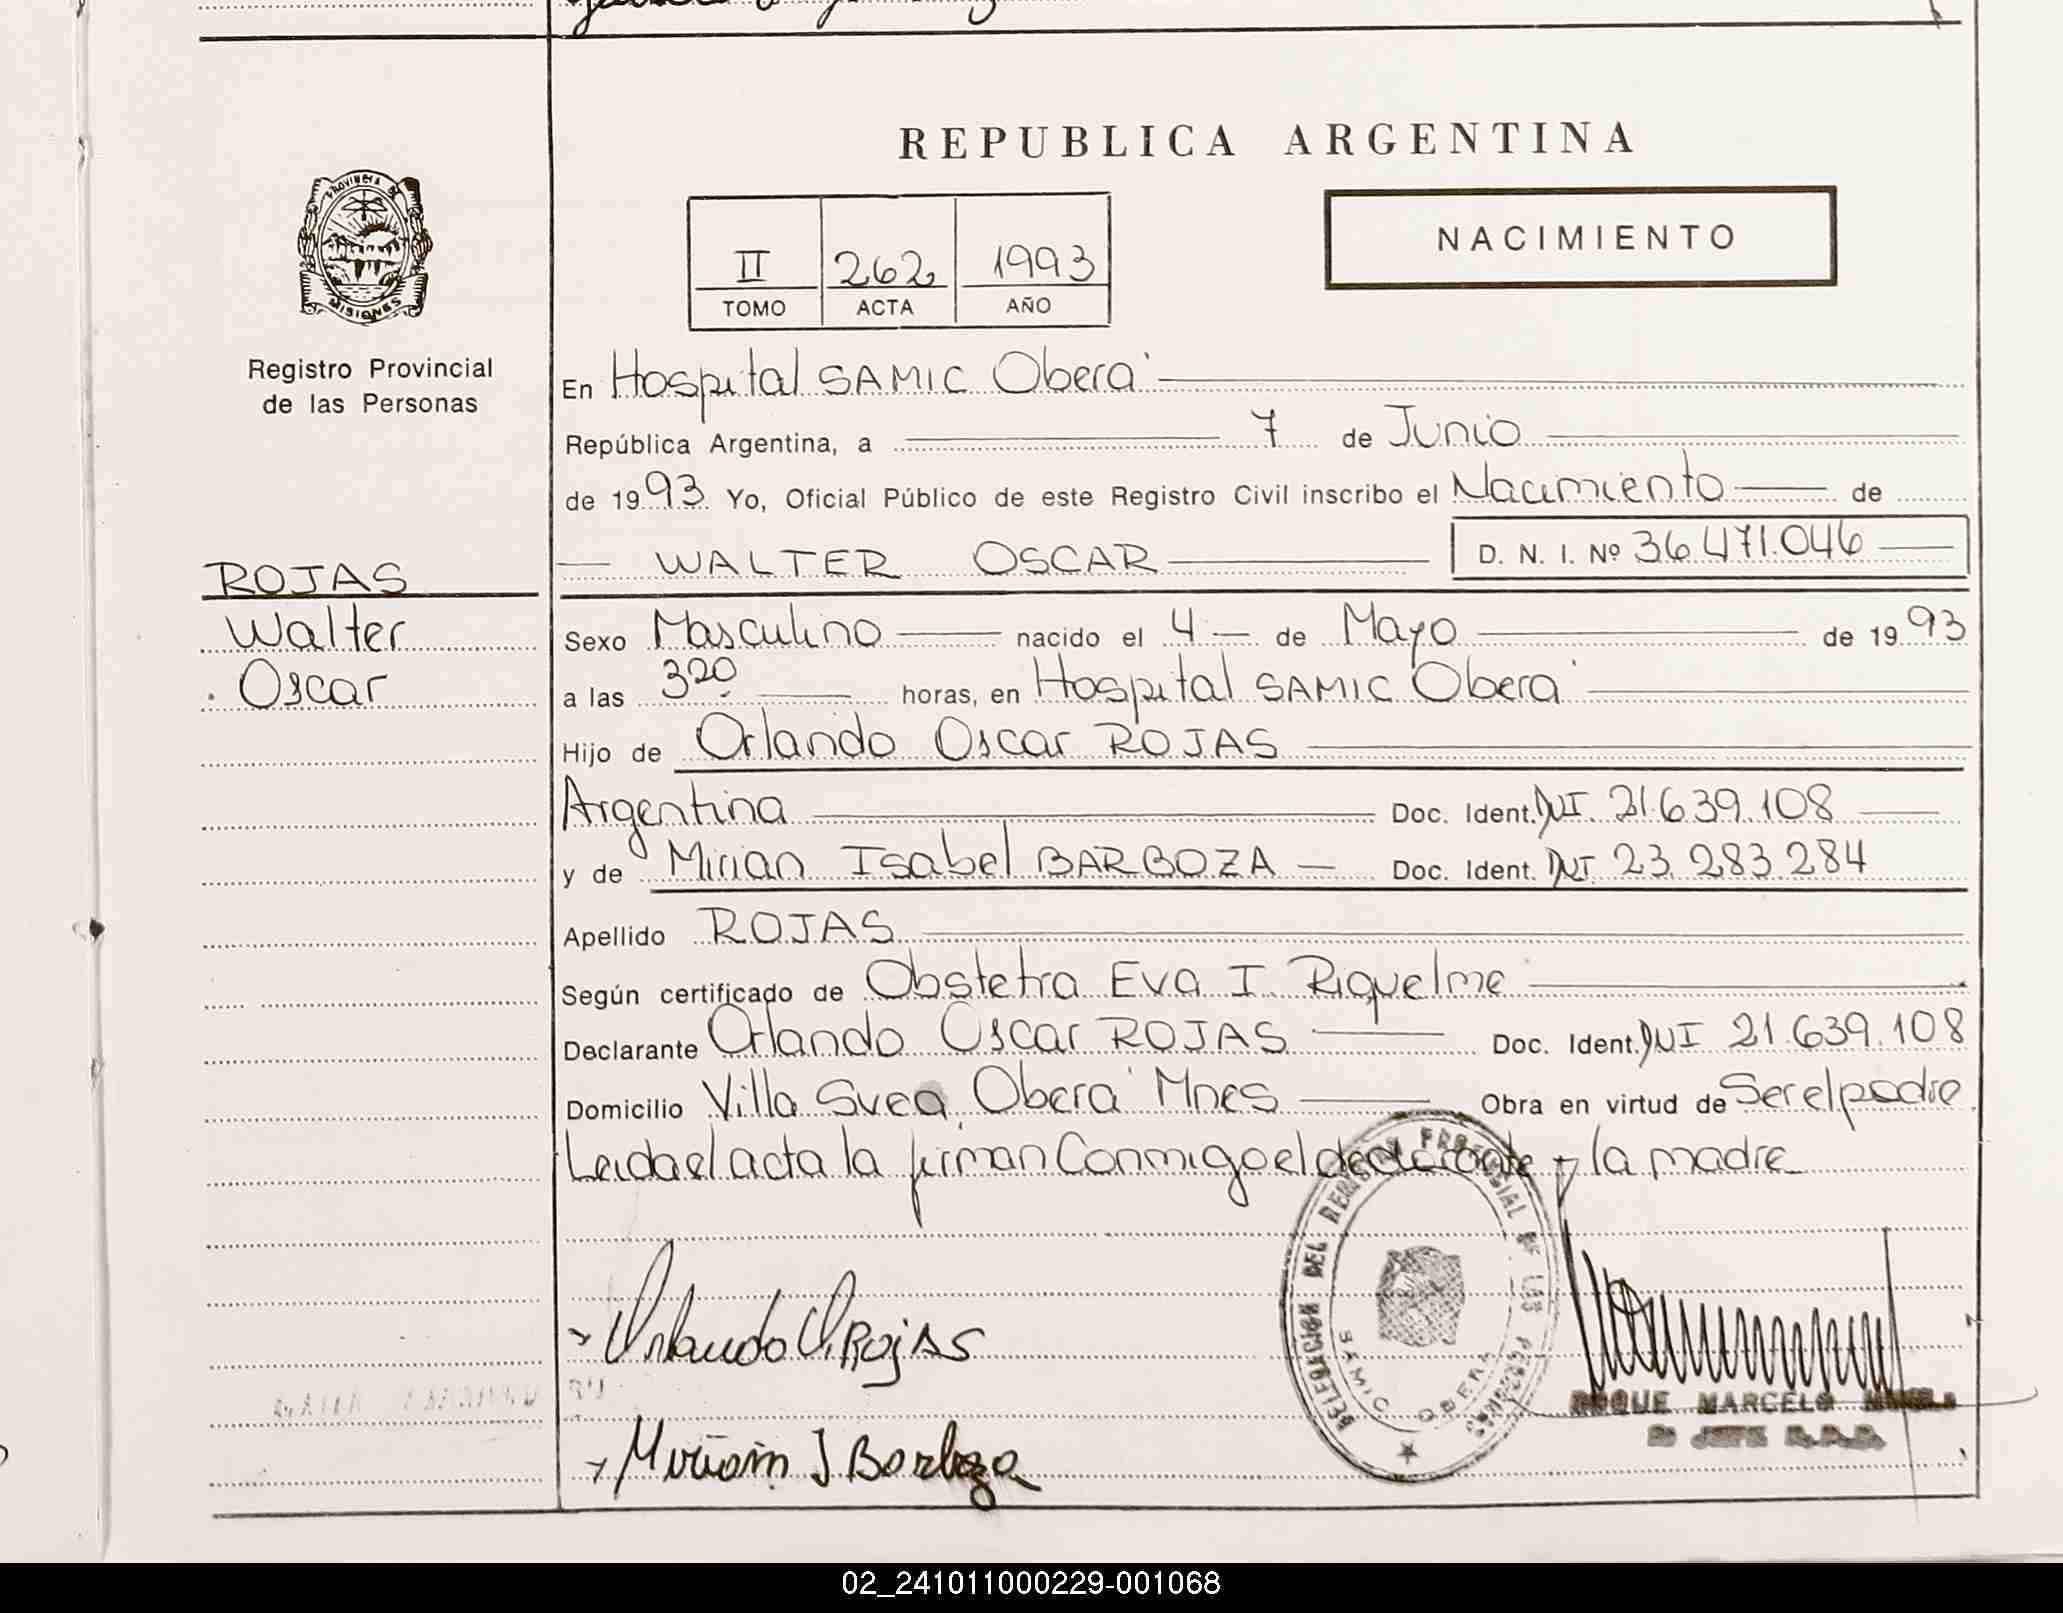 REPUBLICA ARGENTINA
PROVINCIA DE
MISIONES
Registro Provincial
de las Personas
II 262 1993
TOMO ACTA AÑO
NACIMIENTO
En Hospital SAMIC Oberá
República Argentina, a 7 de Junio
de 1993 Yo, Oficial Público de este Registro Civil inscribo el Nacimiento de
WALTER OSCAR D. N. I. Nº 36.471.046
ROJAS
Walter
Oscar
Sexo Masculino nacido el 4 de Mayo de 1993
a las 3 20 horas, en Hospital SAMIC Oberá
Hijo de Orlando Oscar ROJAS
Argentina Doc. Ident. DNI 21.639.108
y de Mirian Isabel BARBOZA Doc. Ident. DNI 23.283.284
Apellido ROJAS
Según certificado de Obstetra Eva I. Riquelme
Declarante Orlando Oscar ROJAS Doc. Ident. DNI 21.639.108
Domicilio Villa Svea Oberá Mnes Obra en virtud de Ser el padre
Leida el acta la firman Conmigo el declarante y la madre
Orlando O. Rojas
Miriam I Barboza
DELEGACION DEL REGISTRO PROVINCIAL DE LAS PERSONAS
SAMIC OBERA
ROQUE MARCELO
02_241011000229-001068